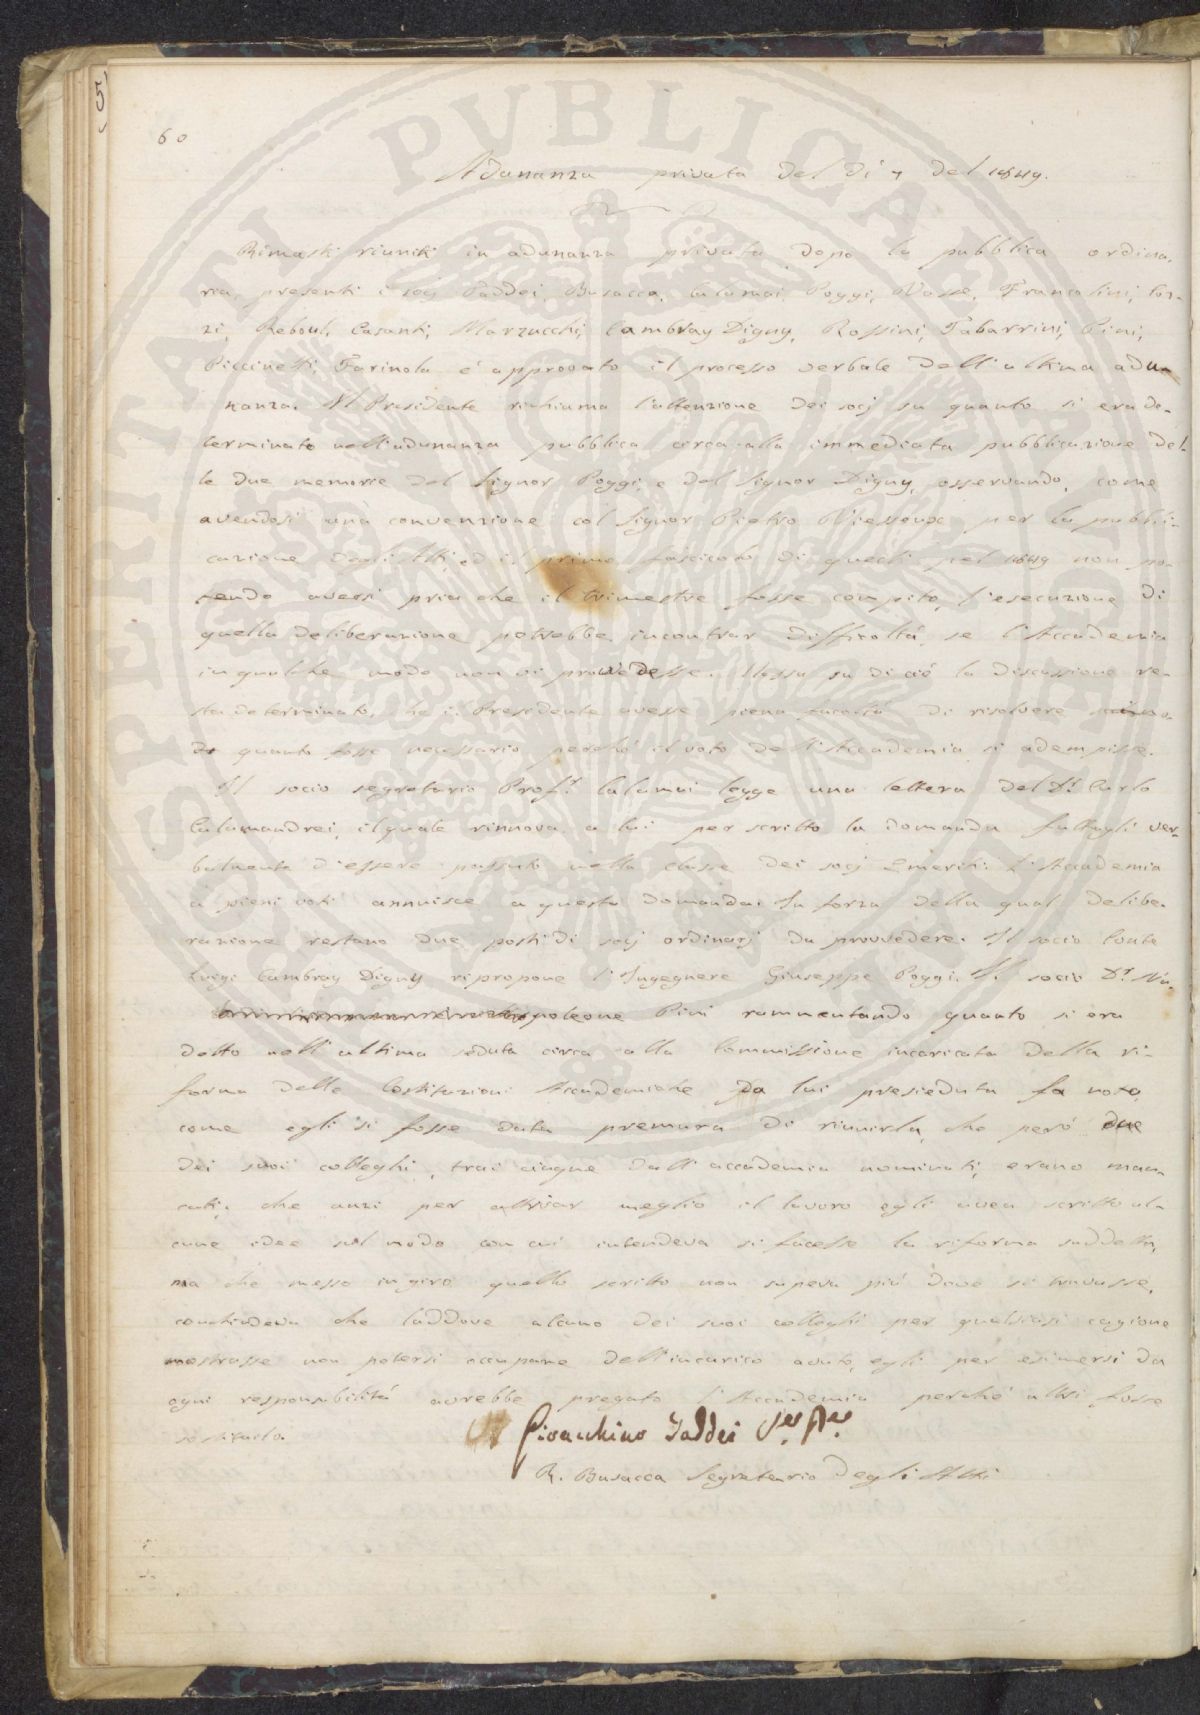 60
Adunanza privata del dì 7 del 1849.
Rimasti riuniti in adunanza privata dopo la pubblica ordina-
ria, presenti i socj Taddei, Busacca, Calamai, Poggi, Francolini, Cor-
zi, Reboul, Casanti, Marzucchi, Cambray Digny, Rossini, Tabarrini, Pini,
Piccinetti, Farinola è approvato il processo verbale dell'ultima adu-
nanza. Il Presidente richiama l'attenzione dei socj su quanto si era de-
terminato nell'adunanza pubblica circa alla immediata pubblicazione del-
le due memorie del Signor Poggi, e del Signor Digny, osservando, come
avendosi una convenzione col Signor Pietro Viesseux per la pubbli-
cazione degli Atti, ed il primo fascicolo di quegli pel 1849 non po-
tendo aversi pria che il trimestre fosse compito, l'esecuzione di
quella deliberazione potrebbe incontrar difficoltà, se l'Accademia
in qualche modo non vi provvedesse. Messa su di ciò la discussione re-
sta determinato, che il Presidente avesse piena facoltà di risolvere
quanto fosse necessario perchè il voto dell'Accademia si adempisse.
Il socio segretario Prof.r Calamai legge una lettera del D.r Carlo
Calamandrei, il quale rinnova a lui per scritto la domanda fattagli ver-
balmente d'essere passato nella classe dei socj Emeriti: L'Accademia
a pieni voti annuisce a questa domanda. In forza della qual delibe-
razione restano due posti di socj ordinarj da provvedere. Il socio Conte
Luigi Cambray Digny ripropone l'Ingegnere Giuseppe Poggi. Il socio D.r Na-
poleone Pini rammentando quanto si era
detto nell'ultima seduta circa alla Commissione incaricata della ri-
forma delle Costituzioni Accademiche da lui presieduta fa noto,
come egli si fosse data premura di riunirla, che però due
dei suoi colleghi, trai cinque dall'accademia nominati, erano man-
cati; che anzi per attivar meglio il lavoro egli avea scritto al-
cune idee sul modo con cui intendeva si facesse la riforma suddetta,
ma che messo in giro quello scritto non sapeva più dove si trovasse,
conchiudeva che laddove alcuno dei suoi colleghi per qualsiasi cagione
mostrasse non potersi occupare dell'incarico avuto, egli per esimersi da
ogni responsabilità avrebbe pregato l'Accademia perchè altri fosse
sostituito.
Gioacchino Taddei
R. Busacca Segretario degli Atti